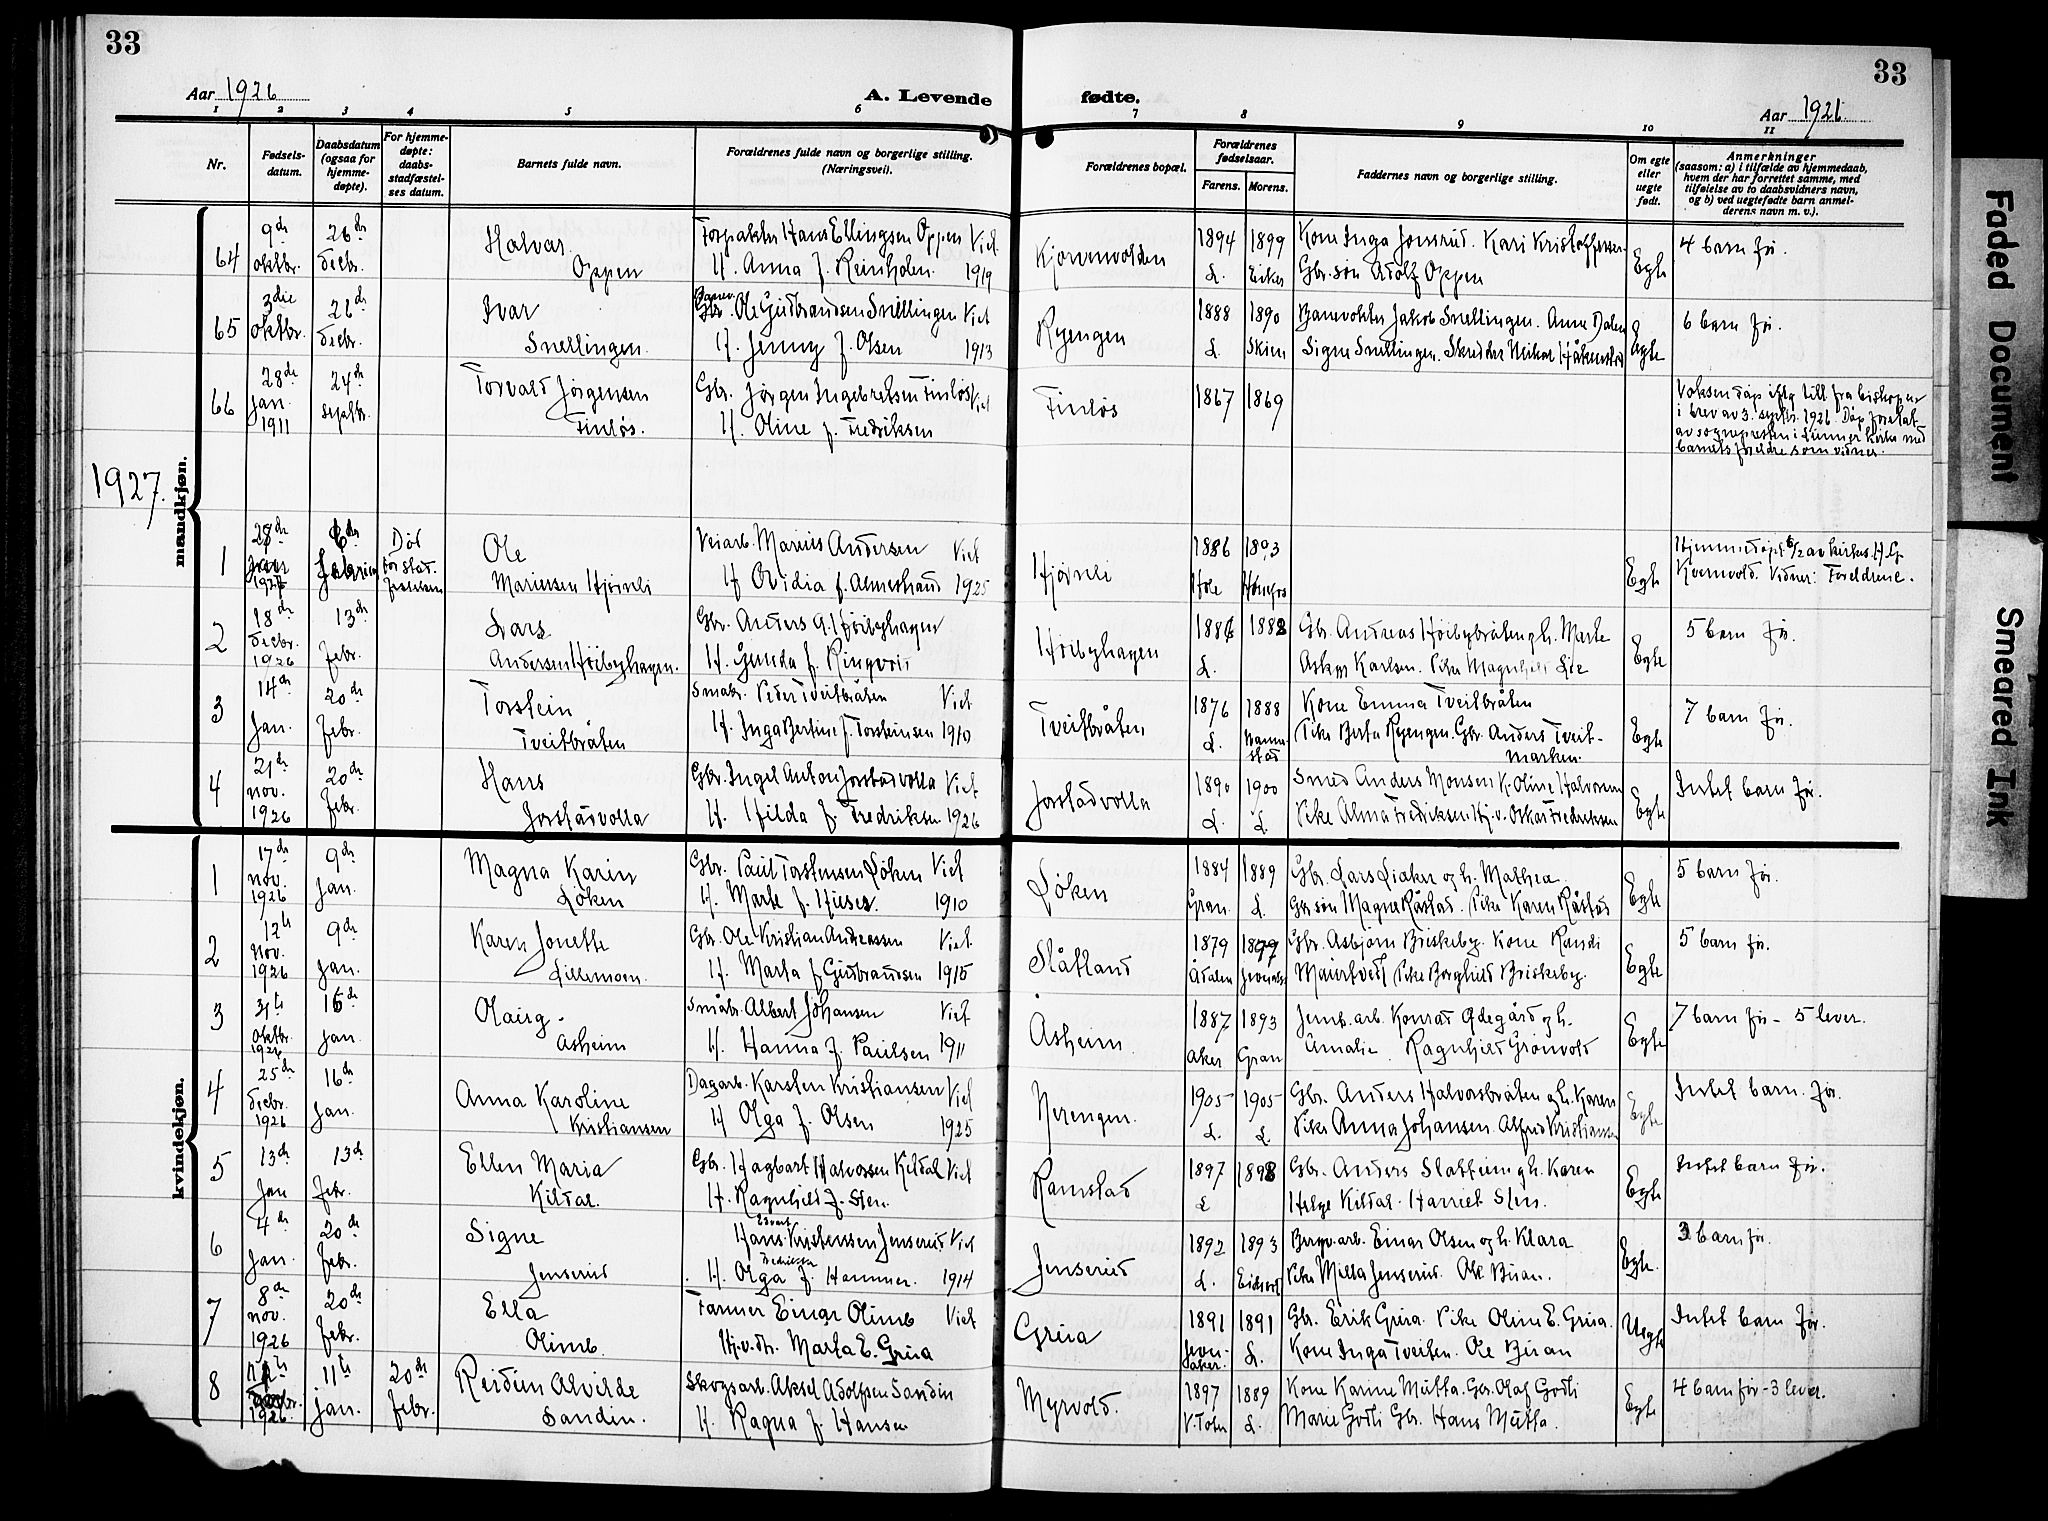 33
33
Aar 1926
A. Levende
fødte.
Aar 1926
1 2 3 4 5 6 7 8 9 10 11
Nr.
Fødsels-
datum.
Daabsdatum
(ogsaa for
hjemme-
døpte).
For hjemme-
døpte:
daabs-
stadfæstel-
ses datum.
Barnets fulde navn.
Forældrenes fulde navn og borgerlige stilling.
(Næringsvei).
Forældrenes bopæl.
Forældrenes
fødselsaar.
Farens. Morens.
Faddernes navn og borgerlige stilling.
Om egte
eller
uegte
født.
Anmerkninger
(saasom: a) i tilfælde av hjemmedaab,
hvem der har forrettet samme, med
tilføielse av to daabsvidners navn,
og b) ved uegtefødte barn anmel-
derens navn m. v.).
mandkjøn.
64
9de
oktbr.
26de
decbr.
Halvar
Oppen
Forpakter Hans Ellingsen Oppen Viet
H. Anna f. Reinholen 1919
Kjørenvolden
1894 1899
L. Eiker
Kone Inga Jonsrud. Kari Kristoffersen
Gbr. søn Adolf Oppen
Egte
4 barn før.
65
3die
oktbr.
26de
decbr.
Ivar
Snellingen.
Banev.
Gbr. Ole Gudbrandsen Snellingen Viet
H. Jenny f. Olsen 1913
Ryengen
1888 1890
L. Skien
Banevokter Jakob Snellingen. Anne Dalen
Signe Snellingen. Skredder Mikal Håkenstad
Egte
6 barn før.
66
28de
jan.
1911
24de
septbr.
Torvald Jørgensen
Finløs.
Gbr. Jørgen Ingebretsen Finløs Viet
H. Oline f. Fredriksen
Finløs
1867 1869
Voksen døp iflg till. fra biskopen
i brev av 3. septbr. 1926. Døp foretat
av sogneprester i Lunner kirke med
barnets foreldre som vidner.
1927.
1
28de
jan
1927
6de
februar
Død
før stad-
festelsen
Ole
Mariussen Hjørnli
Veiarb. Marius Andersen Viet
H Ovidia f. Almestrand 1925
Hjørnli
1886 1893
Hole Hønefos
Egte
Hjemmedøpt 6/2 av kirkes. H. G.
Kvernvold. Vidner: Foreldrene.
2
18de
decbr.
1926
13de
febr.
Lars
Andersen Høibyhagen.
Gbr. Anders A. Høibyhagen
H. Gunda f. Ringvoir
Høibyhagen
1886 1882
L.
Gbr. Andreas Høibybråten og h. Marte
Asker Karlsen. Pike Magnhild Lie
Egte
5 barn før.
3
14de
Jan.
20de
Febr.
Torstein
Tveitbråten
Småbr. Peder Tveitbråten Viet
H. Inga Bertine f. Torsteinsen 1910
Tveitbråten
1876 1888
L. Nanne-
stad
Kone Emma Tveitbråten
Pike Berta Ryengen. Gbr. Anders Tveit-
marken.
Egte
7 barn før.
4
21de
nov.
1926
20de
febr.
Hans
Jorstadvolla
Gbr. Ingel Anton Jorstadvolla Viet
H. Hilda f. Fredriksen 1926
Jorstadvolla
1890 1900
L. L.
Smed Anders Monsen K. Oline Halvorsen
Pike Alma Fredriksen Hj.v. Oskar Fredriksen
Egte
Intet barn før.
kvindekjøn.
1
17de
nov.
1926
9de
Jan.
Magna Karin
Løken
Gbr. Paul Torstensen Løken Viet
H. Marte f. Huser. 1910
Løken
1884 1889
Gran. L.
Gbr. Lars Liaker og h. Mathea.
Gbr søn Magne Råstad. Pike Karen Råstad
Egte
5 barn før.
2
12te
Nov.
1926
9de
jan.
Karen Jonette
Lillemoen.
Gbr. Ole Kristian Andreassen Viet.
H. Marta f Gudbrandsen 1915
Slåtland
1879 1897
Ådalen Jevnaker
Gbr. Asbjørn Briskeby. Kone Randi
Maiertved. Pike Borghild Briskeby.
Egte
5 barn før.
3
31te
Oktbr.
1926
16de
Jan.
Olaug
Åsheim
Småbr. Albert Johansen Viet
H. Hanna f. Paulsen 1911
Åsheim
1887 1893
Aker Gran
Jernb. arb. Konrad Ødegård og h.
Amalie. Ragnhild Grønvold
Egte
7 barn før - 5 lever.
4
25de
decbr.
1926
16de
Jan.
Anna Karoline
Kristiansen
Dagarb. Karsten Kristiansen Viet
H Olga f. Olsen 1925
Nerengen.
1905 1905
L. L.
Gbr. Anders Halvorsbråten og h. Karen
Pike Anna Johansen. Alfred Kristiansen
Egte
Intet barn før.
5
13de
Jan
13de
febr.
Ellen Maria
Kildal.
Gbr. Hagbart Halvorsen Kildal Viet
H. Ragnhild f. Sten.
Ramstad
1897 1898
L
Gbr. Anders Slatteum og h. Karen
Helge Kildal. Harriet Sten.
Egte
Intet barn før.
6
4de
Jan.
20de
febr.
Signe
Jenserud
Edvart
Hans Kristensen Jenserud Viet
Fredriksen
H. Olga f. Hammer. 1914
Jenserud
1892 1893
L. Eidsvold
Bergv.arb. Einar Olsen og h. Klara
Pike Milla Jenserud. Ole Buan.
Egte.
3 barn før.
7
8de
nov.
1926
20de
febr.
Ella
Olimb.
Farmer Einar Olimb Viet
Hj.v.dt. Marta E. Grua
Grua
1891 1891
Jevn-
aker. L.
Gbr. Erik Grua. Pike Oline E. Grua.
Kone Inga Tveiten. Ole Buan
Uegte
Intet barn før.
8
1926
11te
jan.
20de
febr.
Reidun Alvilde
Sandin.
Skogsarb. Aksel Adolfsen Sandin
H. Ragna f Hansen
Myrvold.
1897 1889
V. Toten L.
Kone Karine Mutta. Gbr. Olaf Godli
Marie Godli Gbr. Hans Mutta.
Egte
4 barn før - 3 lever.
Faded Document
Smeared Ink